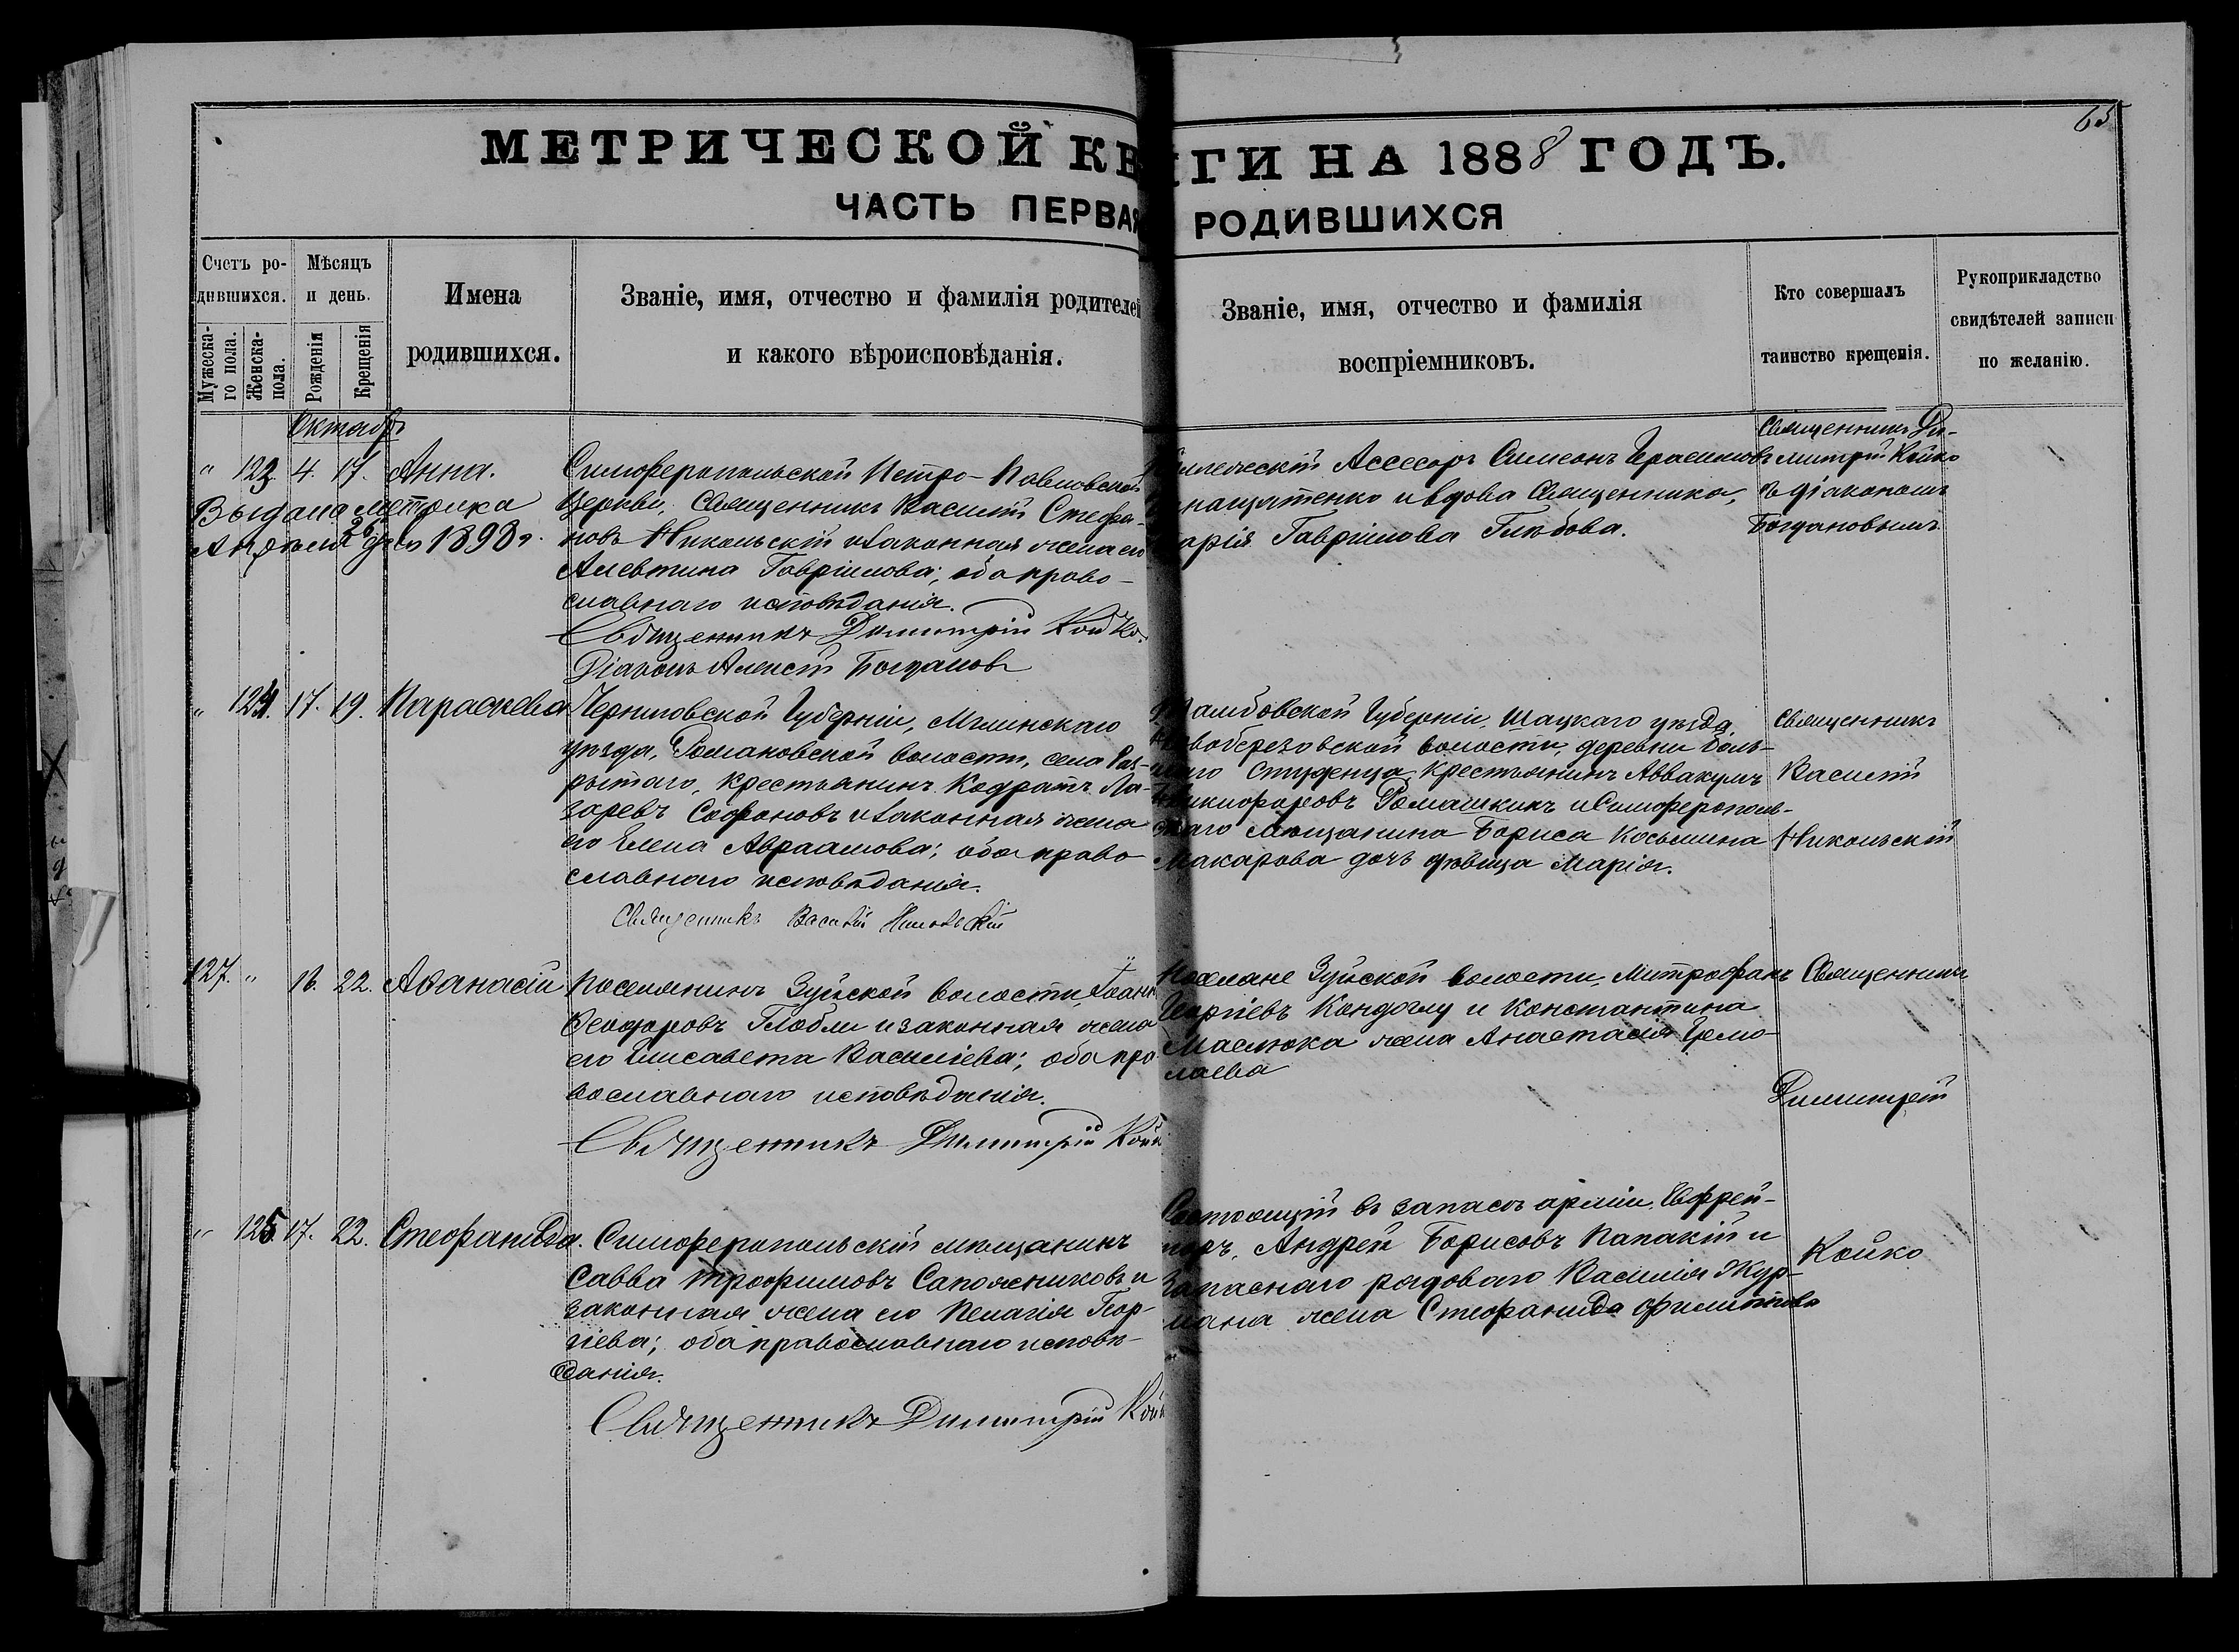 65
МЕТРИЧЕСКОЙ КН ГИ НА 1888 ГОДЪ.
ЧАСТЬ ПЕРВАЯ РОДИВШИХСЯ
Счетъ ро-
дившихся.
Мужеска-
го пола.
Женска-
пола.
Мѣсяцъ
и день.
Рожденія
Крещенія
Имена
родившихся.
Званіе, имя, отчество и фамилія родителей
и какого вѣроисповѣданія.
Званіе, имя, отчество и фамилія
воспріемниковъ.
Кто совершалъ
таинство крещенія.
Рукоприкладство
свидѣтелей записи
по желанію.
Октябрь
" 123. 4. 17. Анна.
Выдана метрика
Апрѣля 26 дня 1898 г.
Симферопольской Петро-Павловской
Церкви, Священникъ Василій Стефа-
новъ Никольскій и законная жена его
Алевтина Гавріилова; оба право-
славнаго исповѣданія.
Священникъ Димитрій Койко.
Діаконъ Алексій Богдановъ
Ассесоръ Симеонъ Герасимовъ
и вдова Священника,
Марія Гавріилова Глѣбова.
Священникъ Ди-
митрій Койко
съ діакономъ
Богдановымъ
" 124. 17. 19. Параскева
Черниговской Губерніи, Мглинскаго
уѣзда, Романовской волости, села Раз-
рытаго, крестьянинъ Кодратъ Ла-
заревъ Софоновъ и законная жена
его Елена Авраамова; оба право
славнаго исповѣданія.
Священникъ Василій Никольскій
Тамбовской Губерніи, Шацкаго уѣзда,
Новоберезовской волости, деревни Боль-
шаго Студенца, крестьянинъ Аввакумъ
Никифоровъ Ромашкинъ и Симферополь-
скаго мѣщанина Бориса Косьмина
Макарова дочь дѣвица Марія.
Священникъ
Василій
Никольскій
127. " 16. 22. Аѳанасій
Поселянинъ Зуйской волости Іоаннъ
Ѳеодоровъ Глобли и законная жена
его Елисавета Василіева; оба пра-
вославнаго исповѣданія.
Священникъ Димитрій Койко
Поселяне Зуйской волости, Митрофанъ
Георгіевъ Кондоглу и Константина
Маслюка жена Анастасія Ермо-
лаева
Священникъ
Димитрій
" 125. 17. 22. Стефанида.
Симферопольскій мѣщанинъ
Савва Трофимовъ Сапожниковъ и
законная жена его Пелагія Геор-
гіева; оба православнаго исповѣ-
данія.
Священникъ Димитрій Койко
Состоящій въ запасѣ арміи, Ефрей-
торъ, Андрей Борисовъ Папакій и
запаснаго рядоваго Василія Жур-
мана жена Стефанида Филиппова
Койко